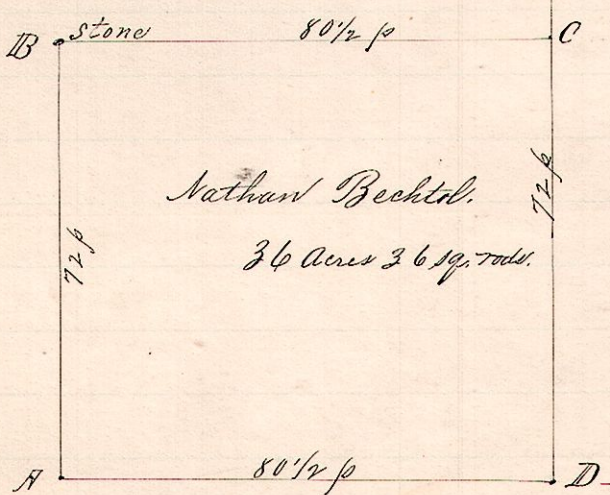 B stone 80 1/2 p C
Nathan Bechtol.
72 p
36 Acres 36 sq. rods.
72 p
A 80 1/2 p D